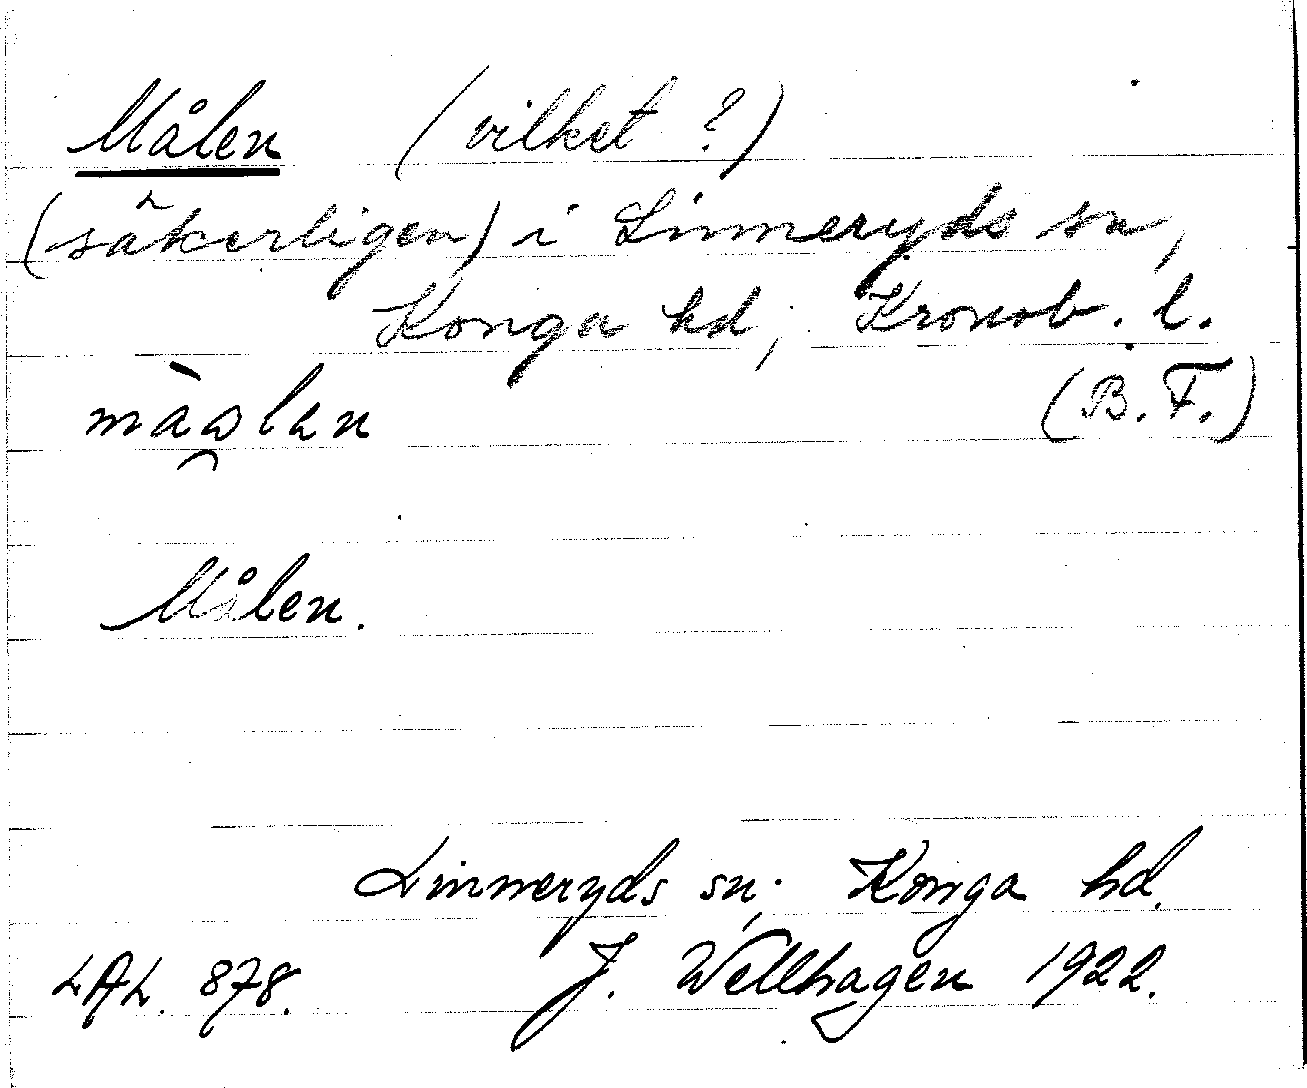 Målen (vilket?)
(säkerligen) i Linneryds sn,
Konga hd, Kronob. l.
(B. F.)
Målen.
Linneryds sn, Konga hd.
LAL. 878. J. Wellhagen 1922.